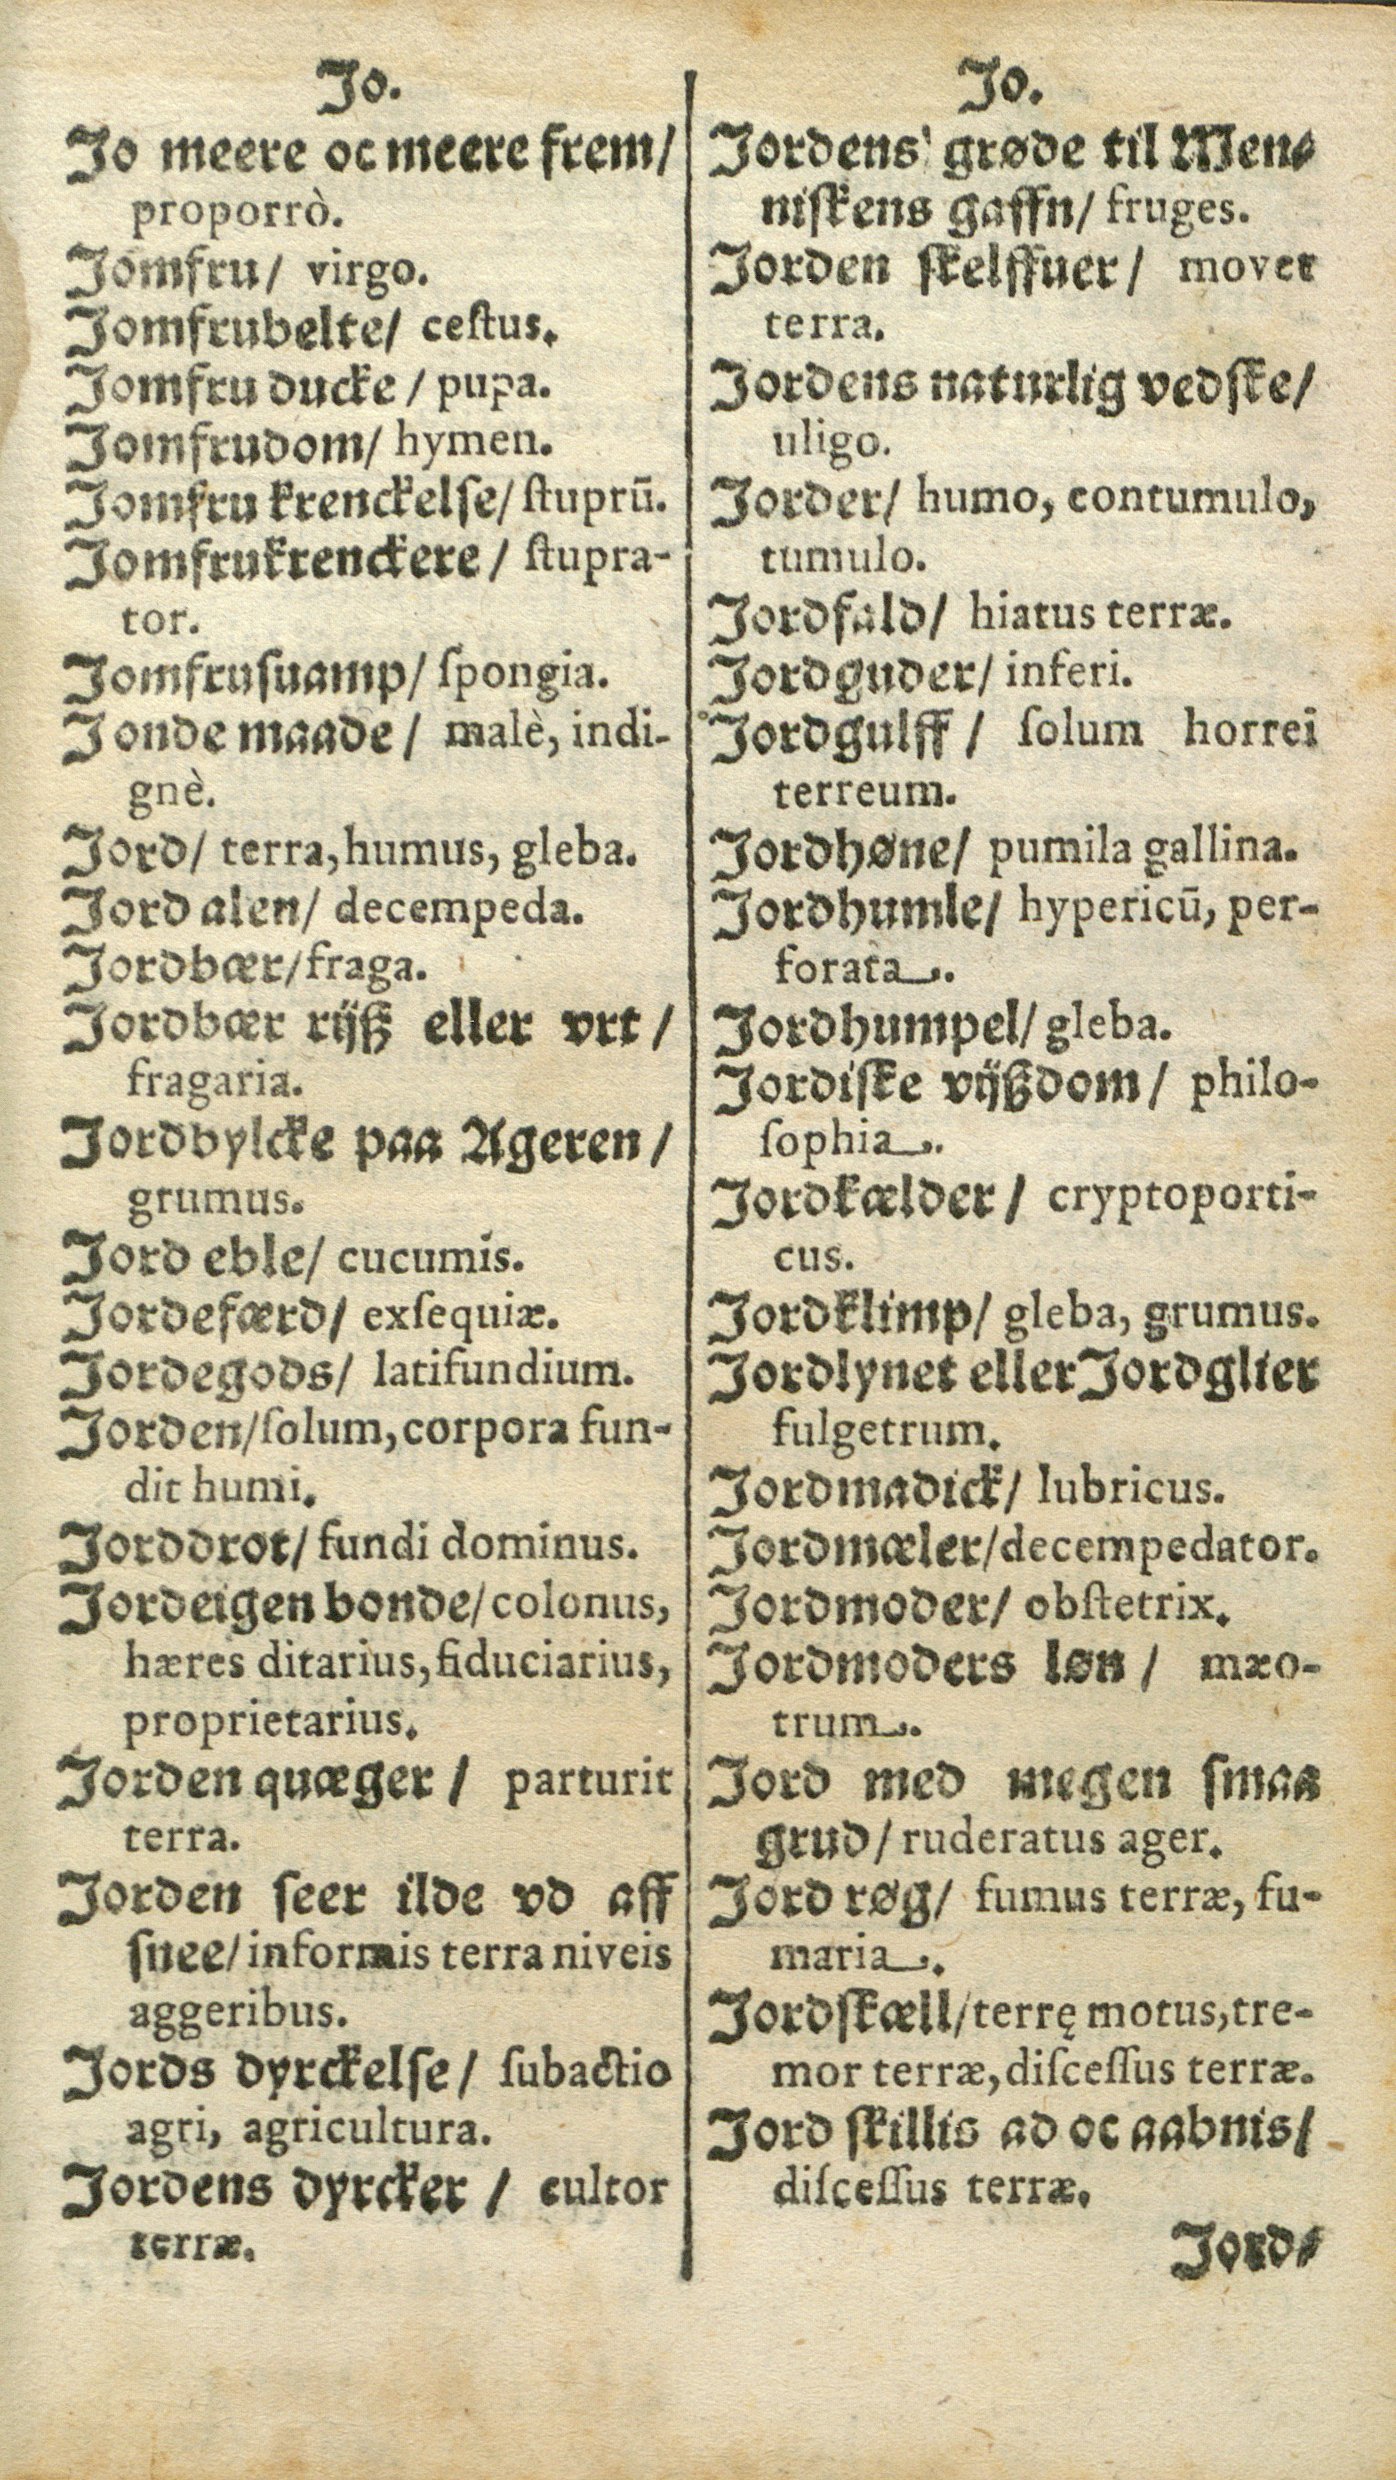 Jo.
Jo meere oc meere frem/
proporrò.
Jomfru/ virgo.
Jomfrubelte/ ceſtus.
Jomfru ducke / pupa.
Jomfrudom/ hymen.
Jomfru krenckelſe/ ſtuprū.
Jomfrukrenckere / ſtupra-
tor.
Jomfruſuamp/ ſpongia.
Jonde maade / malè, indi-
gnè.
Jord/ terra, humus, gleba.
Jord alen/ decempeda.
Jordbær/ fraga.
Jordbær rijß eller vrt /
fragaria.
Jordbylcke paa Ageren /
grumus.
Jord eble/ cucumis.
Jordefærd/ exſequiæ.
Jordegods/ latifundium.
Jorden/ ſolum, corpora fun-
dit humi.
Jorddrot/ fundi dominus.
Jordeigen bonde/ colonus,
hæres ditarius, fiduciarius,
proprietarius.
Jorden quæger / parturit
terra.
Jorden ſeer ilde vd aff
ſnee/ informis terra niveis
aggeribus.
Jords dyrckelſe/ ſubactio
agri, agricultura.
Jordens dyrcker / cultor
terræ.
Jo.
Jordens grøde til Men⸗
niſkens gaffn/ fruges.
Jorden ſkelffuer / movet
terra.
Jordens naturlig vedſke/
uligo.
Jorder/ humo, contumulo,
tumulo.
Jordfald/ hiatus terræ.
Jordguder/ inferi.
Jordgulff / ſolum horrei
terreum.
Jordhøne/ pumila gallina.
Jordhumle/ hypericū, per-
forata.
Jordhumpel/ gleba.
Jordiſke vijßdom / philo-
ſophia.
Jordkælder / cryptoporti-
cus.
Jordklimp/ gleba, grumus.
Jordlynet eller Jordglier
fulgetrum.
Jordmadick/ lubricus.
Jordmæler/ decempedator.
Jordmoder/ obſtetrix.
Jordmoders løn / mæo-
trum.
Jord med megen ſmaa
grud/ ruderatus ager.
Jord røg/ fumus terræ, fu-
maria.
Jordſkæll/ terrę motus, tre-
mor terræ, diſceſſus terræ.
Jord ſkillis ad oc aabnis/
diſceſſus terræ.
Jord⸗